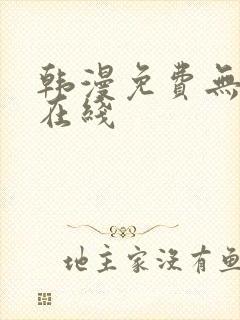 韩漫免费無
在线
地主家没有鱼